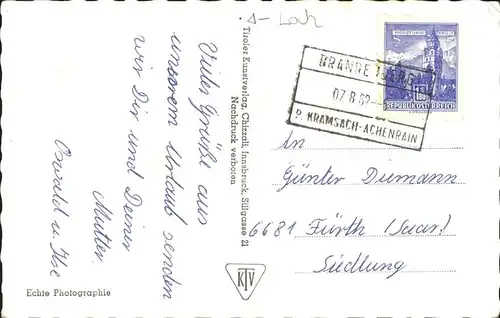 Δ-Lah
Viele Grüße aus
unserem Urlaub senden
wir Dir und Deiner
Mutter
Oswald u. Ilse
Echte Photographie
Tiroler Kunstverlag, Chizzali, Innsbruck, Sillgasse 21
Nachdruck verboten
KTV
REPUBLIK ÖSTERREICH
07.8.62
P. KRAMSACH-ACHENRAIN
An
Günter Diemann
6681 Fürth (Saar)
Siedlung